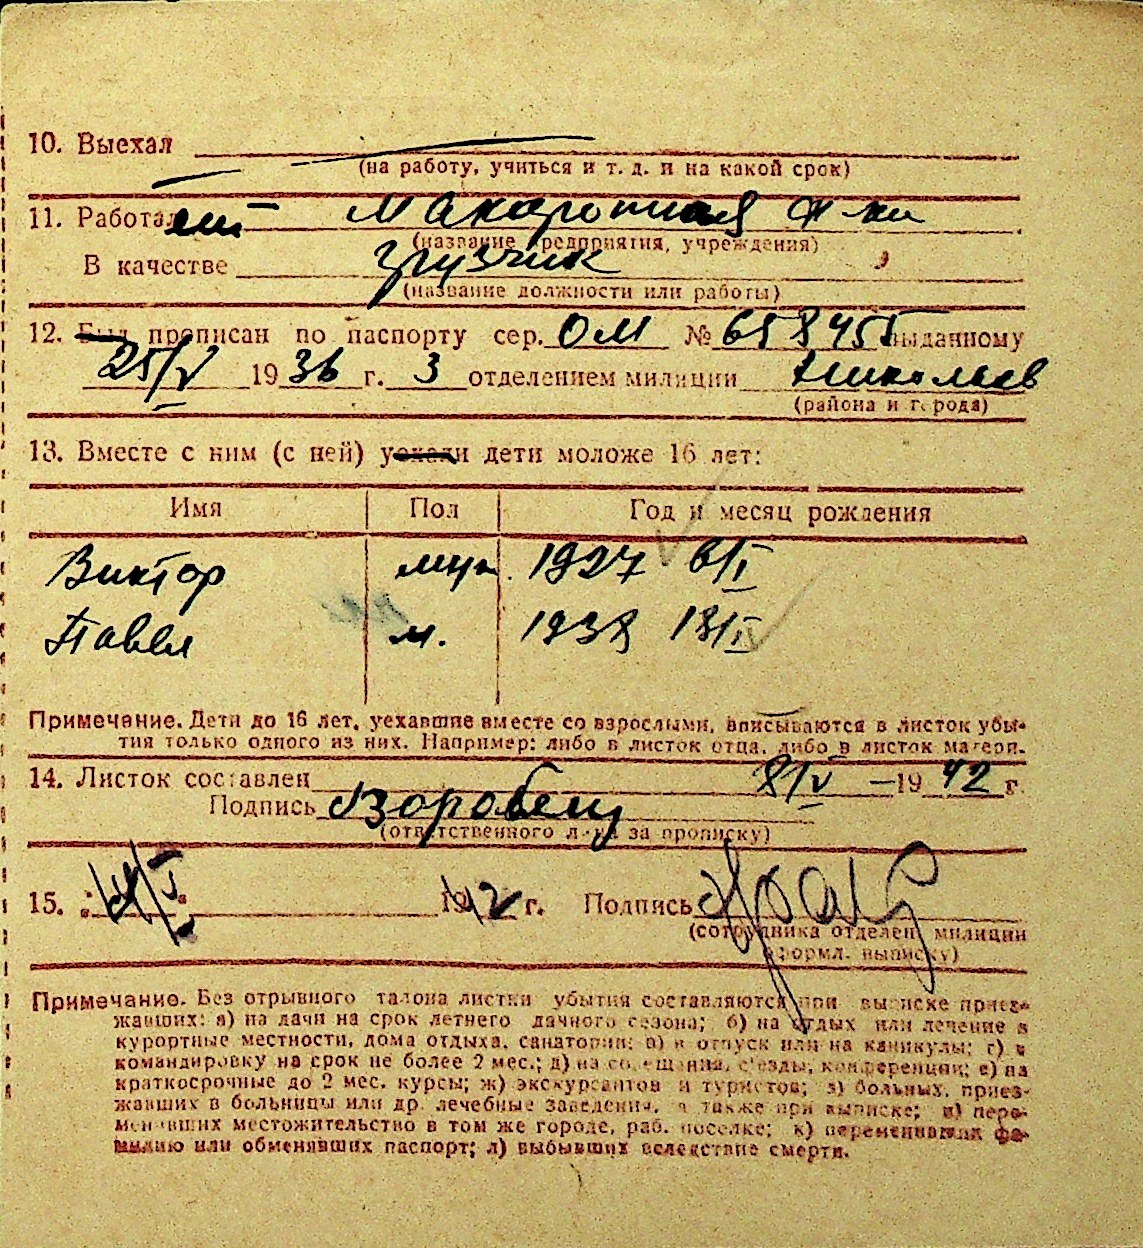 10. Выехал
(на работу, учиться и т. д. и на какой срок)
11. Работает Макаронная ф-ка
(название предприятия, учреждения)
В качестве грузчик
(название должности или работы)
12. Был прописан по паспорту сер. ОМ № 658455 выданному
25/V 1936 г. 3 отделением милиции Николаев
(района и города)
13. Вместе с ним (с ней) уехали дети моложе 16 лет:
Имя Пол Год и месяц рождения
Виктор муж. 1927 6/I
Павел м. 1938 13/II
Примечание. Дети до 16 лет, уехавшие вместе со взрослыми, вписываются в листок убы-
тия только одного из них. Например: либо в листок отца, либо в листок матери.
14. Листок составлен 8/V – 1942 г.
Подпись
(ответственного л-ца за прописку)
15. 1942 г. Подпись
(сотрудника отделен. милиции
оформл. выписку)
Примечание. Без отрывного талона листки убытия составляются при выписке приез-
жавших: а) на дачи на срок летнего дачного сезона; б) на отдых или лечение в
курортные местности, дома отдыха, санатории; в) в отпуск или на каникулы; г) в
командировку на срок не более 2 мес.; д) на совещания, съезды, конференции; е) на
краткосрочные до 2 мес. курсы; ж) экскурсантов и туристов; з) больных, приез-
жавших в больницы или др. лечебные заведения, а также при выписке; и) пере-
менивших местожительство в том же городе, раб. поселке; к) переменивших фа-
милию или обменявших паспорт; л) выбывших вследствие смерти.